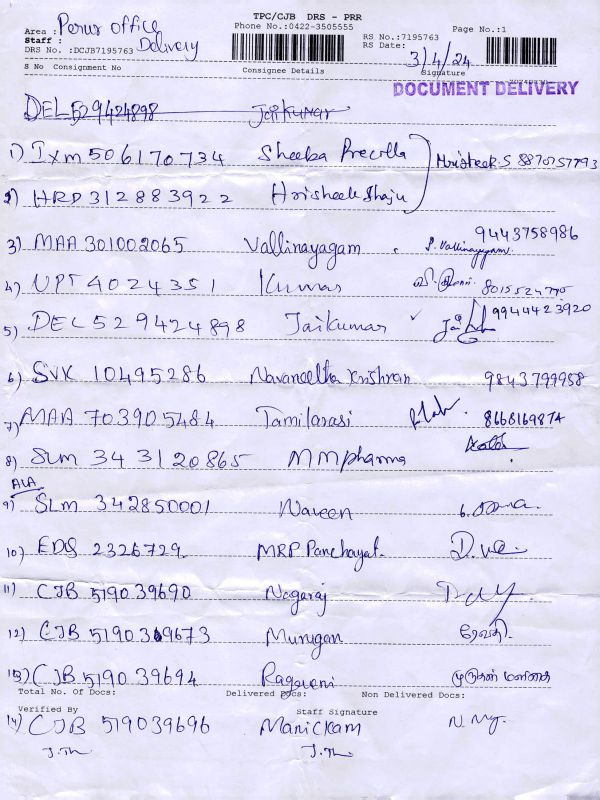 TPC/CJB DRS - PRR
Phone No.:0422-3505555
Area : Perur office
Staff : Delivery
DRS No.:DCJB7195763
RS No.:7195763
RS Date: 3/4/24
Page No.:1
S No Consignment No Consignee Details Signature
DOCUMENT DELIVERY
DEL529424898 Jaikumar
1) Ixm 506170734 Sheeba Precilla Hrisheek.S 8870757793
2) HRD 312883922 Hrisheek Shaju
3) MAA 301002065 Vallinayagam P. Vallinayagam 9443758986
4) NPT 4024351 Kumar
5) DEL 529424898 Jaikumar ✓ 9944423920
6) SVK 10495286 Navaneetha Krishnan 9843799958
7) MAA 703905484 Tamilarasi 8668169874
8) SLM 343120865 MM pharma
ALA
9) SLM 342850001 Naveen
10) EDS 2326729. MRP Panchayat.
11) CJB 519039690 Nagaraj
12) CJB 519039673 Murugan ரேவதி.
13) CJB 519039694 Ragaveni முருகன்
Total No. Of Docs: Delivered Docs: Non Delivered Docs:
Verified By Staff Signature
14) CJB 519039696 Manickam